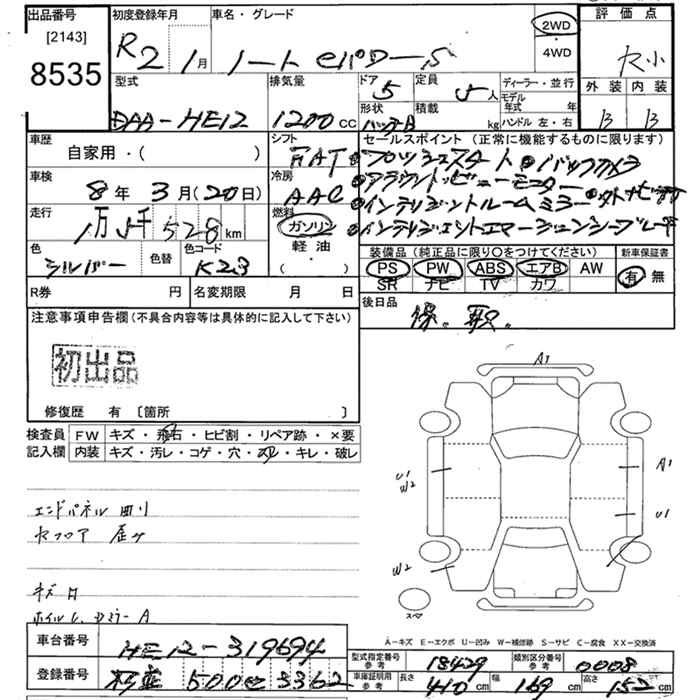 出品番号
[2143]
8535
初度登録年月
R2 1月
車名・グレード
ノート eパワーS
2WD
・
4WD
評価点
R小
外装 内装
B B
型式
DAA-HE12
排気量
1200cc
ドア
5
形状
定員
5人
積載
kg
ディーラー・並行
モデル年式 年
ハンドル 左・右
車歴
自家用・( )
シフト
車検
8年3月(20日)
冷房
AAC
走行
1万5千528km
燃料
ガソリン
軽油
・( )
色
シルバー
色替
色コード
K23
セールスポイント (正常に機能するものに限ります)
●プッシュスタート ●バックカメラ
●アラウンドビューモニター
●インテリジェントルームミラー
●インテリジェントエマージェンシーブレーキ
装備品 (純正品に限り○をつけてください)
PS PW ABS エアB AW
SR ナビ TV カワ
新車保証書
有 無
R券 円
名変期限 月 日
後日品
保.取.
注意事項申告欄(不具合内容等は具体的に記入して下さい)
初出品
修復歴 有 [箇所 ]
検査員記入欄
FW キズ・飛石・ヒビ割・リペア跡・×要
内装 キズ・汚レ・コゲ・穴・スレ・キレ・破レ
エンドパネル 曲り
キズ 凹
A1
U1
W2
A1
U1
W2
スペア
A-キズ E-エクボ U-凹み W-補修跡 S-サビ C-腐食 XX-交換済
車台番号
HE12-319694
登録番号
型式指定番号 参考
18429
類別区分番号 参考
0008
車庫証明用 参考
長さ 410cm 幅 169cm 高さ 152cm